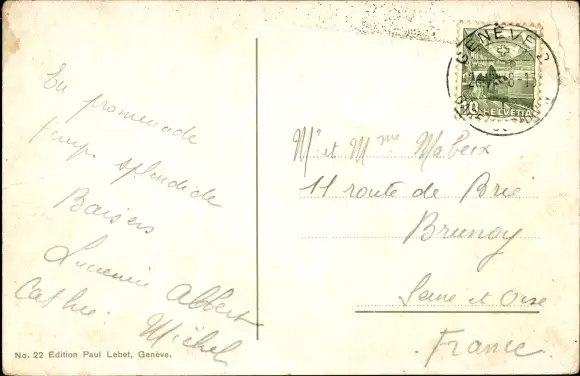 En promenade
temps splendide
Baisers
Lucienne Albert
Cathie. Michel
No. 22 Edition Paul Lebet, Genève.
GENÈVE 2
10
HELVETIA
Mr et Mme
11 route de Brie
Brunoy
Seine et Oise
France.